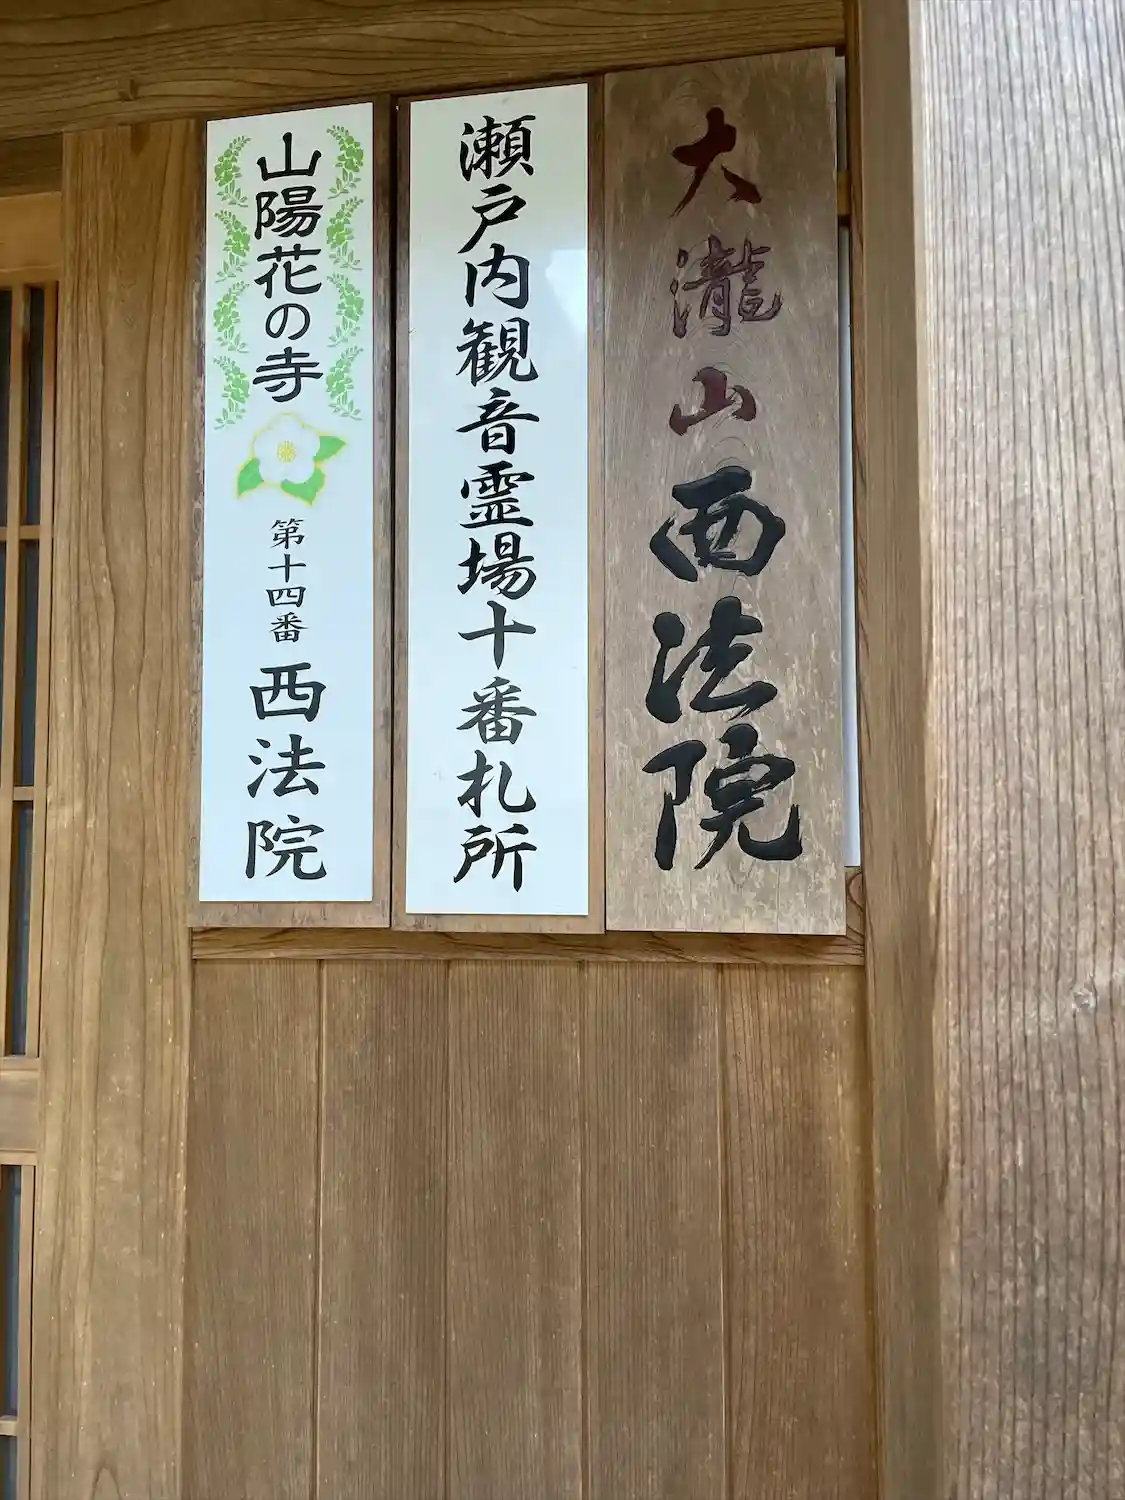 大瀧山西法院
瀬戸内観音霊場十番札所
山陽花の寺
第十四番
西法院